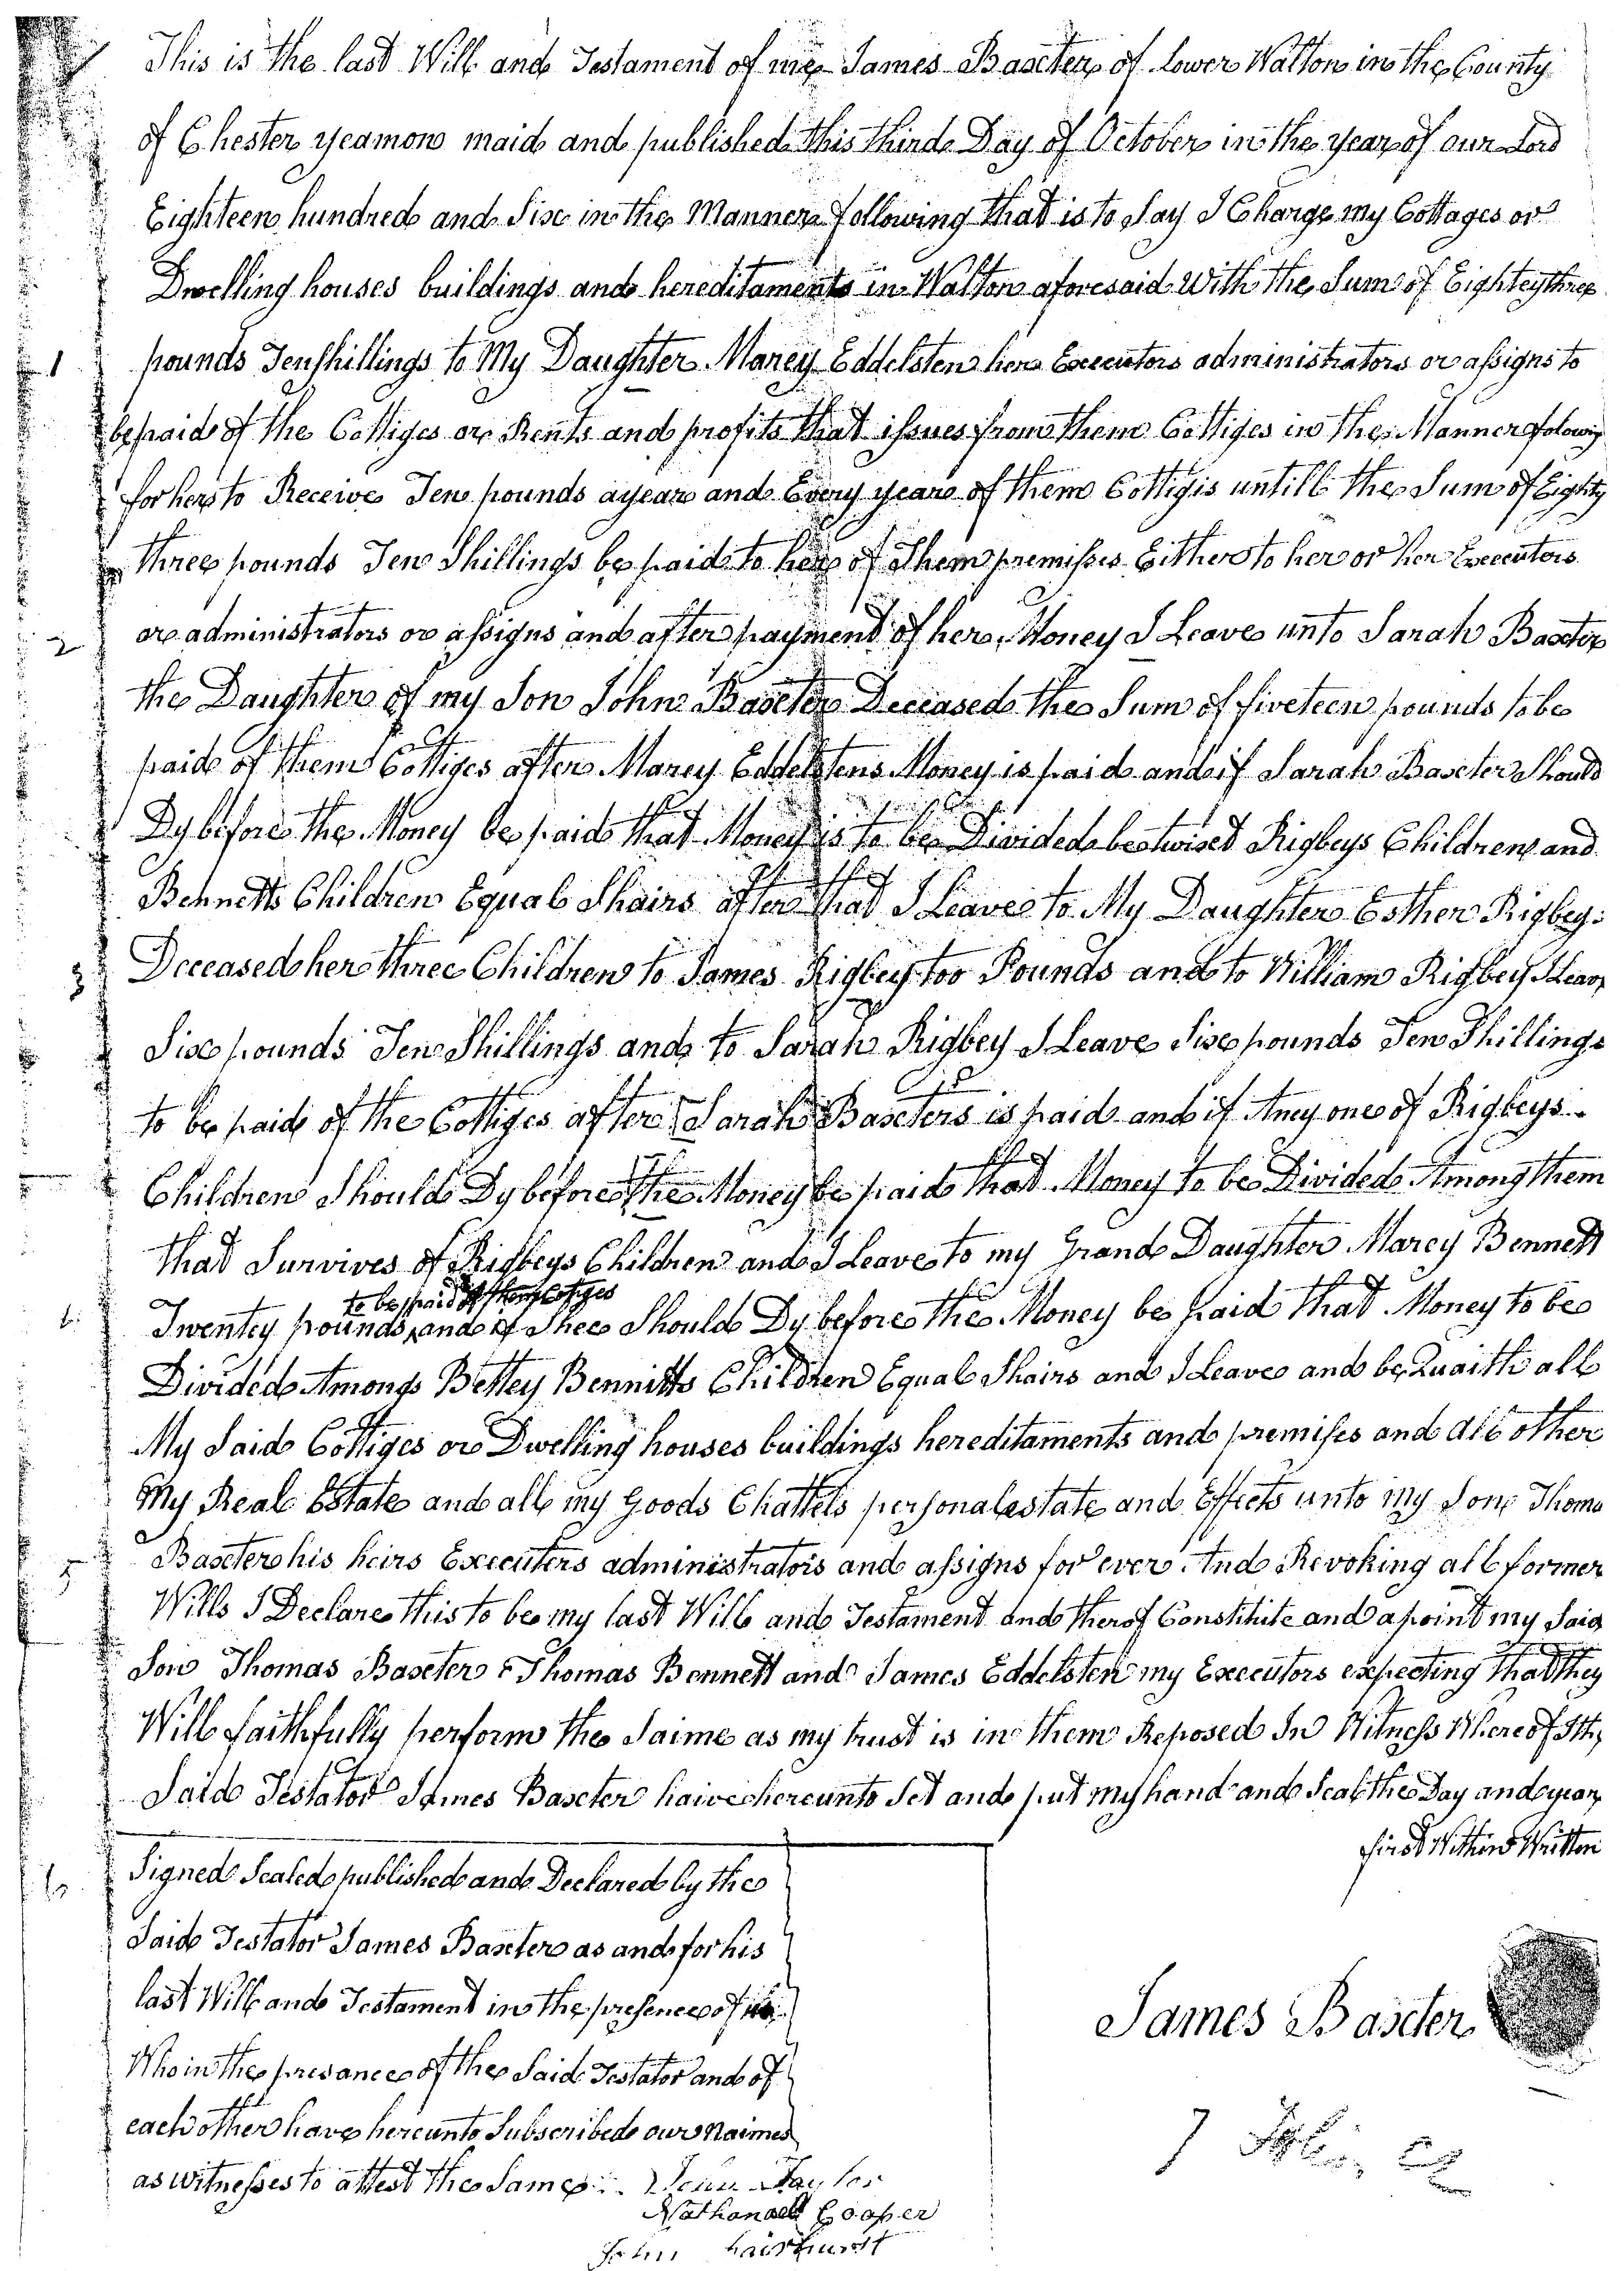 This is the last Will and Testament of me James Baxter of Lower Walton in the County
of Chester yeamon maid and published this third Day of October in the year of our Lord
Eighteen hundred and Six in the Manner following that is to Say I Charge my Cottages or
Dwelling houses buildings and hereditaments in Walton aforesaid With the Sum of Eighteythree
1 pounds Tenshillings to My Daughter Marey Eddelsten her Executors administrators or assigns to
be paid of the Cottiges or Rents and profits that issues from them Cottiges in the Manner folowing
for her to Receive Ten pounds ayear and Every year of them Cottigis untill the Sum of Eighty
three pounds Ten Shillings be paid to her of Them premisses Either to her or her Executors
2 or administrators or assigns and after payment of her Money I Leave unto Sarah Baxter
the Daughter of my Son John Baxter Deceased the Sum of fiveteen pounds to be
paid of them Cottiges after Marey Eddelstens Money is paid and if Sarah Baxter Should
Dy before the Money be paid that Money is to be Divided beetwixt Rigbeys Children and
Bennetts Children Equal Shairs after that I Leave to My Daughter Esther Rigbey
3 Deceased her three Children to James Rigbey too Pounds and to William Rigbey I Leave
Six pounds Ten Shillings and to Sarah Rigbey I Leave Six pounds Ten Shillings
to be paid of the Cottiges after Sarah Baxters is paid and if Aney one of Rigbeys
Children Should Dy before the Money be paid that Money to be Divided Among them
that Survives of Rigbeys Children and I Leave to my Grand Daughter Marey Bennett
to be paid of them Cotiges
Twentey pounds and if Shee Should Dy before the Money be paid that Money to be
Divided Amongs Bettey Bennitts Children Equal Shairs and I Leave and beQuaith all
My Said Cottiges or Dwelling houses buildings hereditaments and premises and all other
My Real Estate and all my Goods Chattels personal estate and Effects unto my Son Thomas
5 Baxter his heirs Executers administrators and assigns for ever And Revoking all former
Wills I Declare this to be my last Will and Testament and therof Constitute and apoint my Said
Son Thomas Baxter Thomas Bennett and James Eddelsten my Executors expecting that they
Will faithfully perform the Saime as my trust is in them Reposed In Witness Whereof I the
Said Testator James Baxter haive hereunto Set and put my hand and Seal the Day and year
first Within Written
Signed Sealed published and Declared by the
Said Testator James Baxter as and for his
last Will and Testament in the presence of us
Who in the presance of the Said Testator and of
each other have hereunto Subscribed our Naimes
as witnesses to attest the Same John Taylor
Nathanael Cooper
John Fairhurst
James Baxter